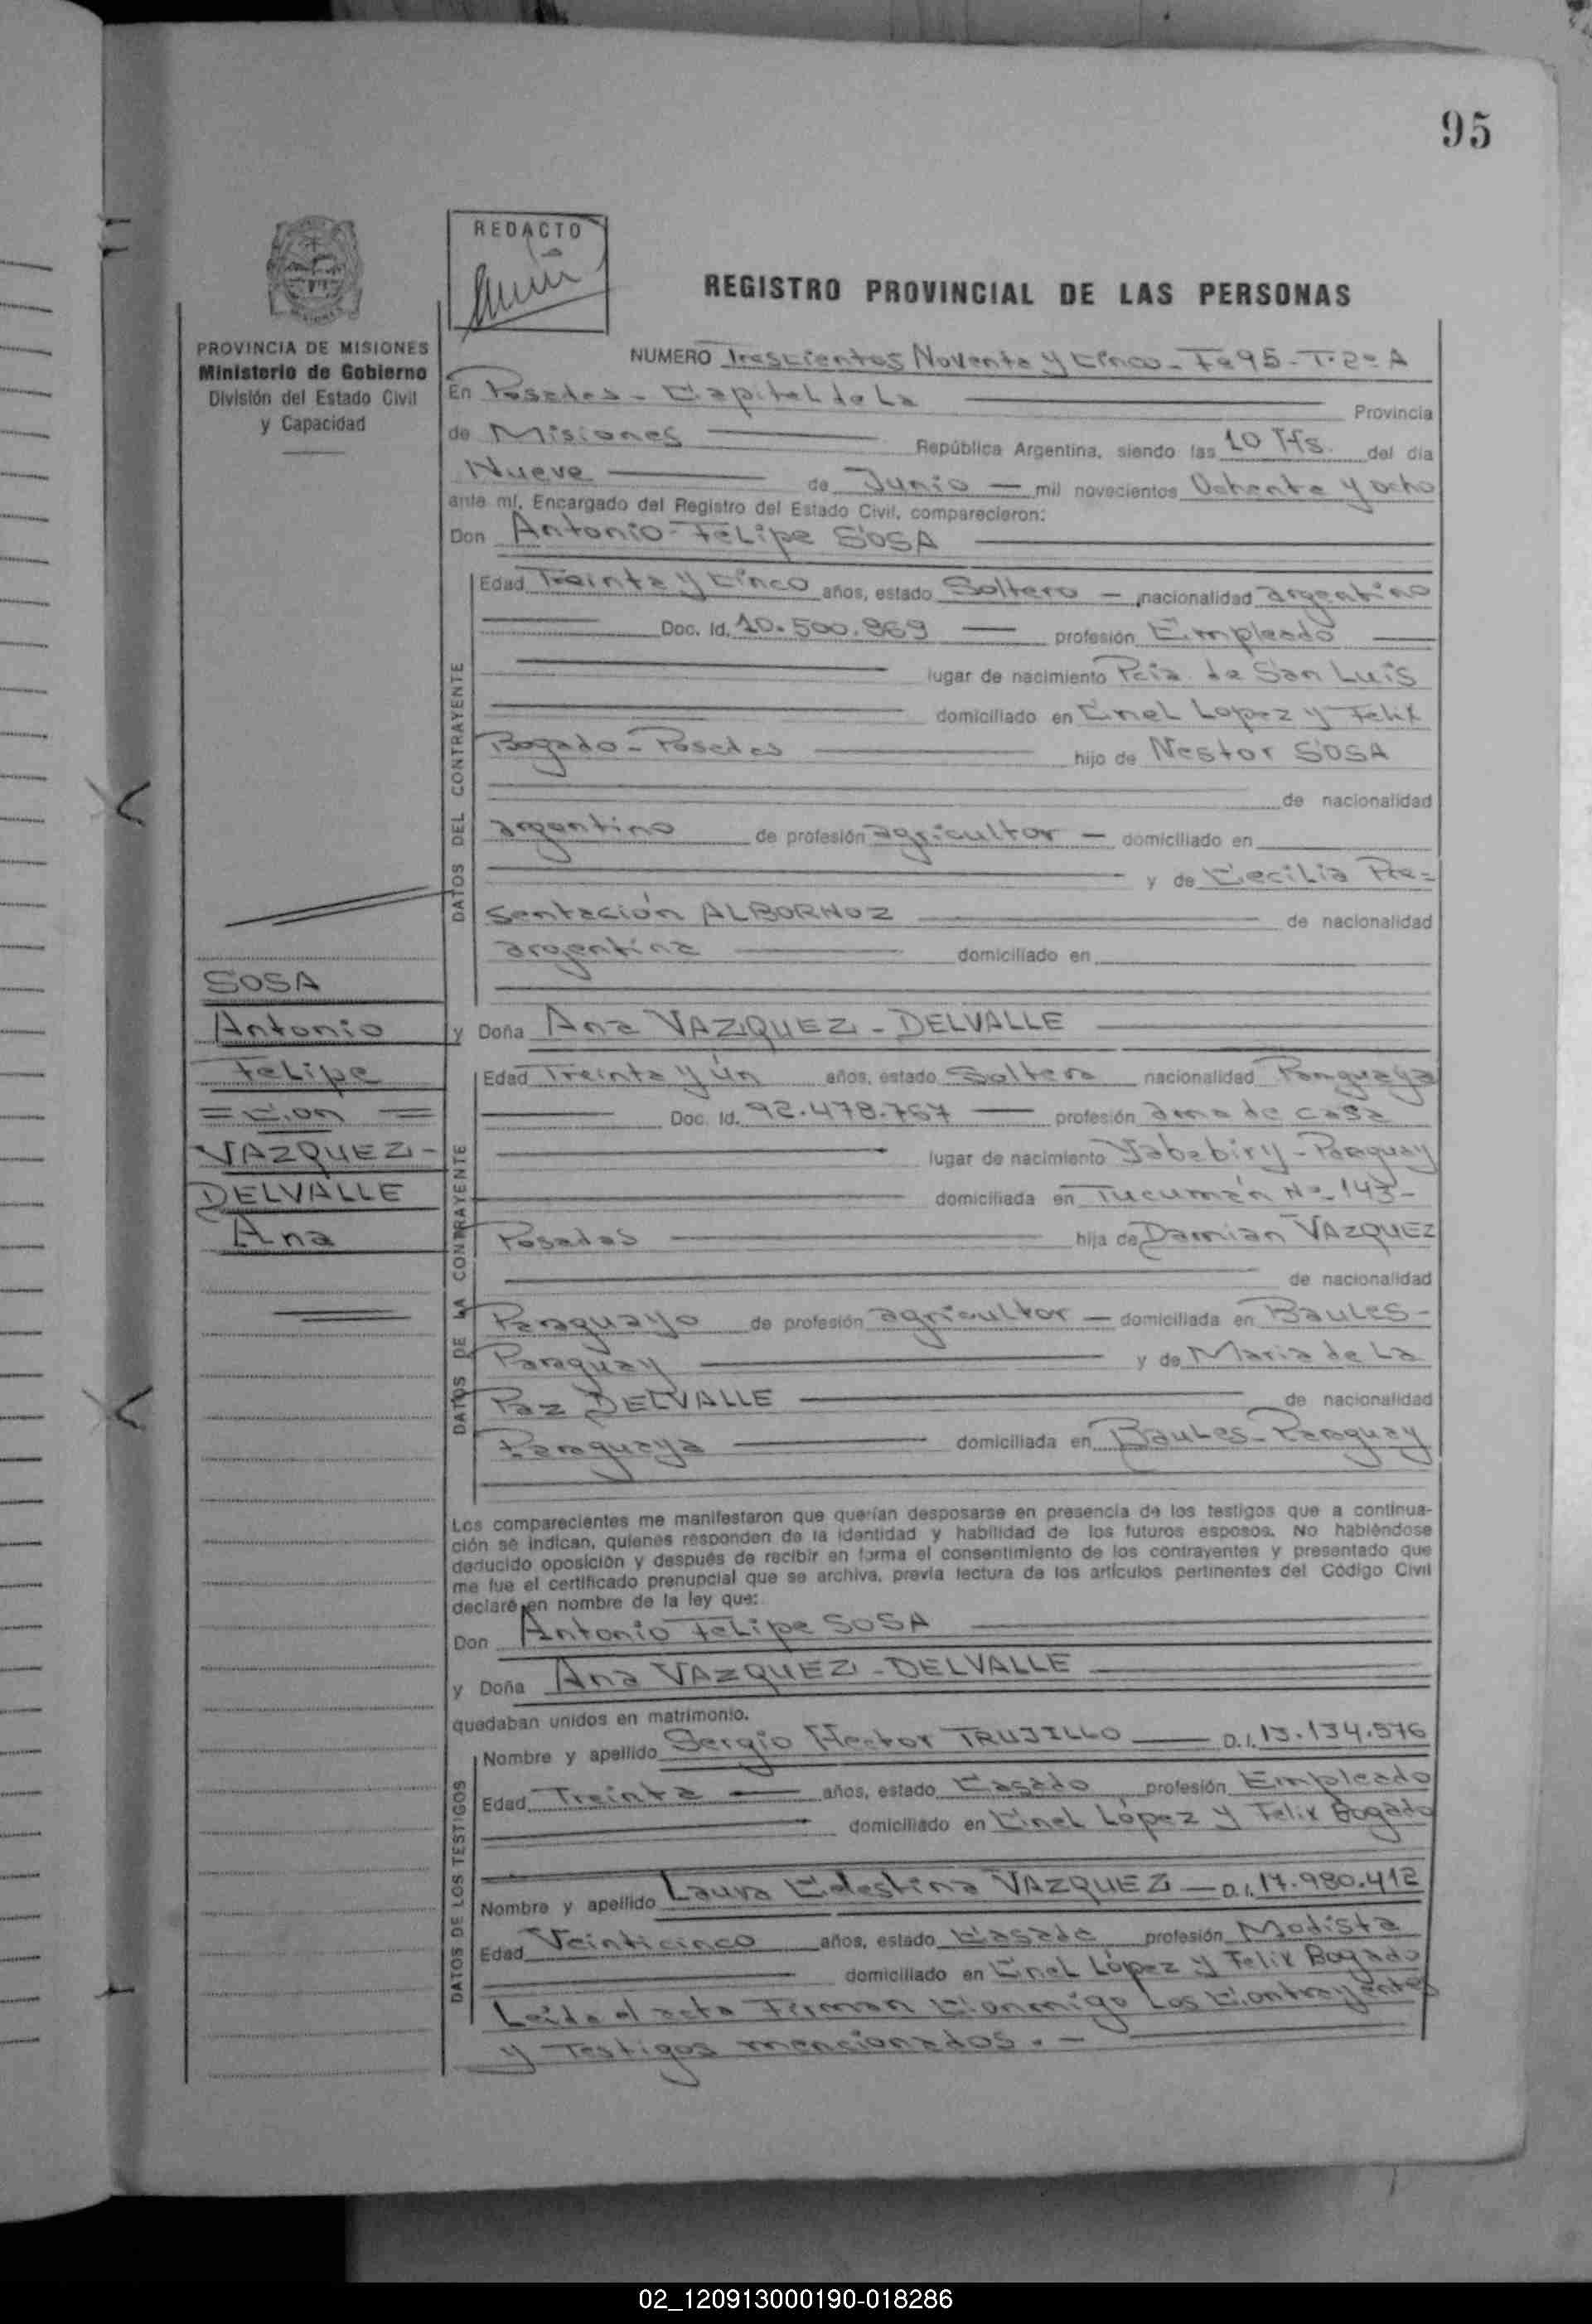 95
REDACTO
REGISTRO PROVINCIAL DE LAS PERSONAS
PROVINCIA DE MISIONES
Ministerio de Gobierno
División del Estado Civil
y Capacidad
NUMERO Trescientos Noventa y Cinco - Fº 95 - T. 2º A
En Posadas - Capital de La Provincia
de Misiones República Argentina, siendo las 10 Hs. del día
Nueve de Junio - mil novecientos Ochenta y ocho
ante mí, Encargado del Registro del Estado Civil, comparecieron:
Don Antonio Felipe SOSA
DATOS DEL CONTRAYENTE
Edad Treinta y Cinco años, estado Soltero - nacionalidad argentino
Doc. Id. 10.500.969 profesión Empleado
lugar de nacimiento Pcia. de San Luis
domiciliado en Cnel Lopez y Felix
Bogado - Posadas hijo de Nestor SOSA
de nacionalidad
argentino de profesión agricultor - domiciliado en
y de Cecilia Pre=
sentación ALBORNOZ de nacionalidad
argentina domiciliado en
SOSA
Antonio
Felipe
= Con =
VAZQUEZ -
DELVALLE
Ana
y Doña Ana VAZQUEZ - DELVALLE
DATOS DE LA CONTRAYENTE
Edad Treinta y Un años, estado Soltera nacionalidad Paraguaya
Doc. Id. 92.478.767 profesión ama de casa
lugar de nacimiento Yabebiry - Paraguay
domiciliada en Tucumán Nº 143-
Posadas hija de Damian VAZQUEZ
de nacionalidad
Paraguayo de profesión agricultor - domiciliada en Baules -
Paraguay y de Maria de La
Paz DELVALLE de nacionalidad
Paraguaya domiciliada en Baules - Paraguay
Los comparecientes me manifestaron que querían desposarse en presencia de los testigos que a continua-
ción se indican, quienes responden de la identidad y habilidad de los futuros esposos. No habiéndose
deducido oposición y después de recibir en forma el consentimiento de los contrayentes y presentado que
me fue el certificado prenupcial que se archiva, previa lectura de los artículos pertinentes del Código Civil
declaré en nombre de la ley que:
Don Antonio Felipe SOSA
y Doña Ana VAZQUEZ - DELVALLE
quedaban unidos en matrimonio.
DATOS DE LOS TESTIGOS
Nombre y apellido Sergio Hector TRUJILLO D.I. 13.134.576
Edad Treinta años, estado Casado profesión Empleado
domiciliado en Cnel López y Felix Bogado
Nombre y apellido Laura Celestina VAZQUEZ - D.I. 17.980.412
Edad Veinticinco años, estado Casada profesión Modista
domiciliado en Cnel López y Felix Bogado
Leida el acta Firman Conmigo Los Contrayentes
y Testigos mencionados. -
02_120913000190-018286